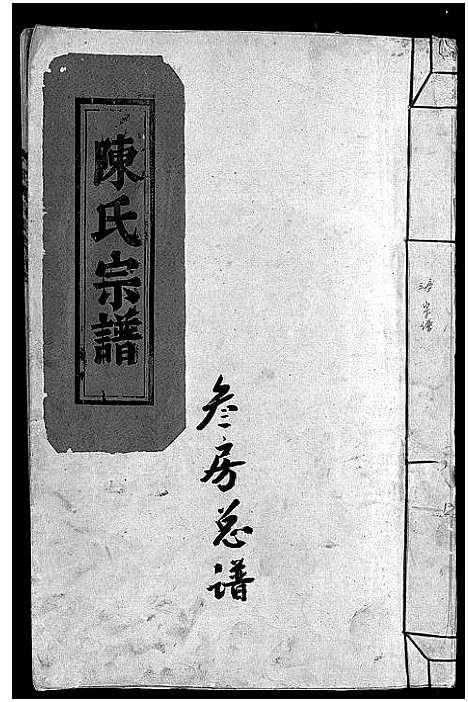 陳氏宗譜
叁房总谱